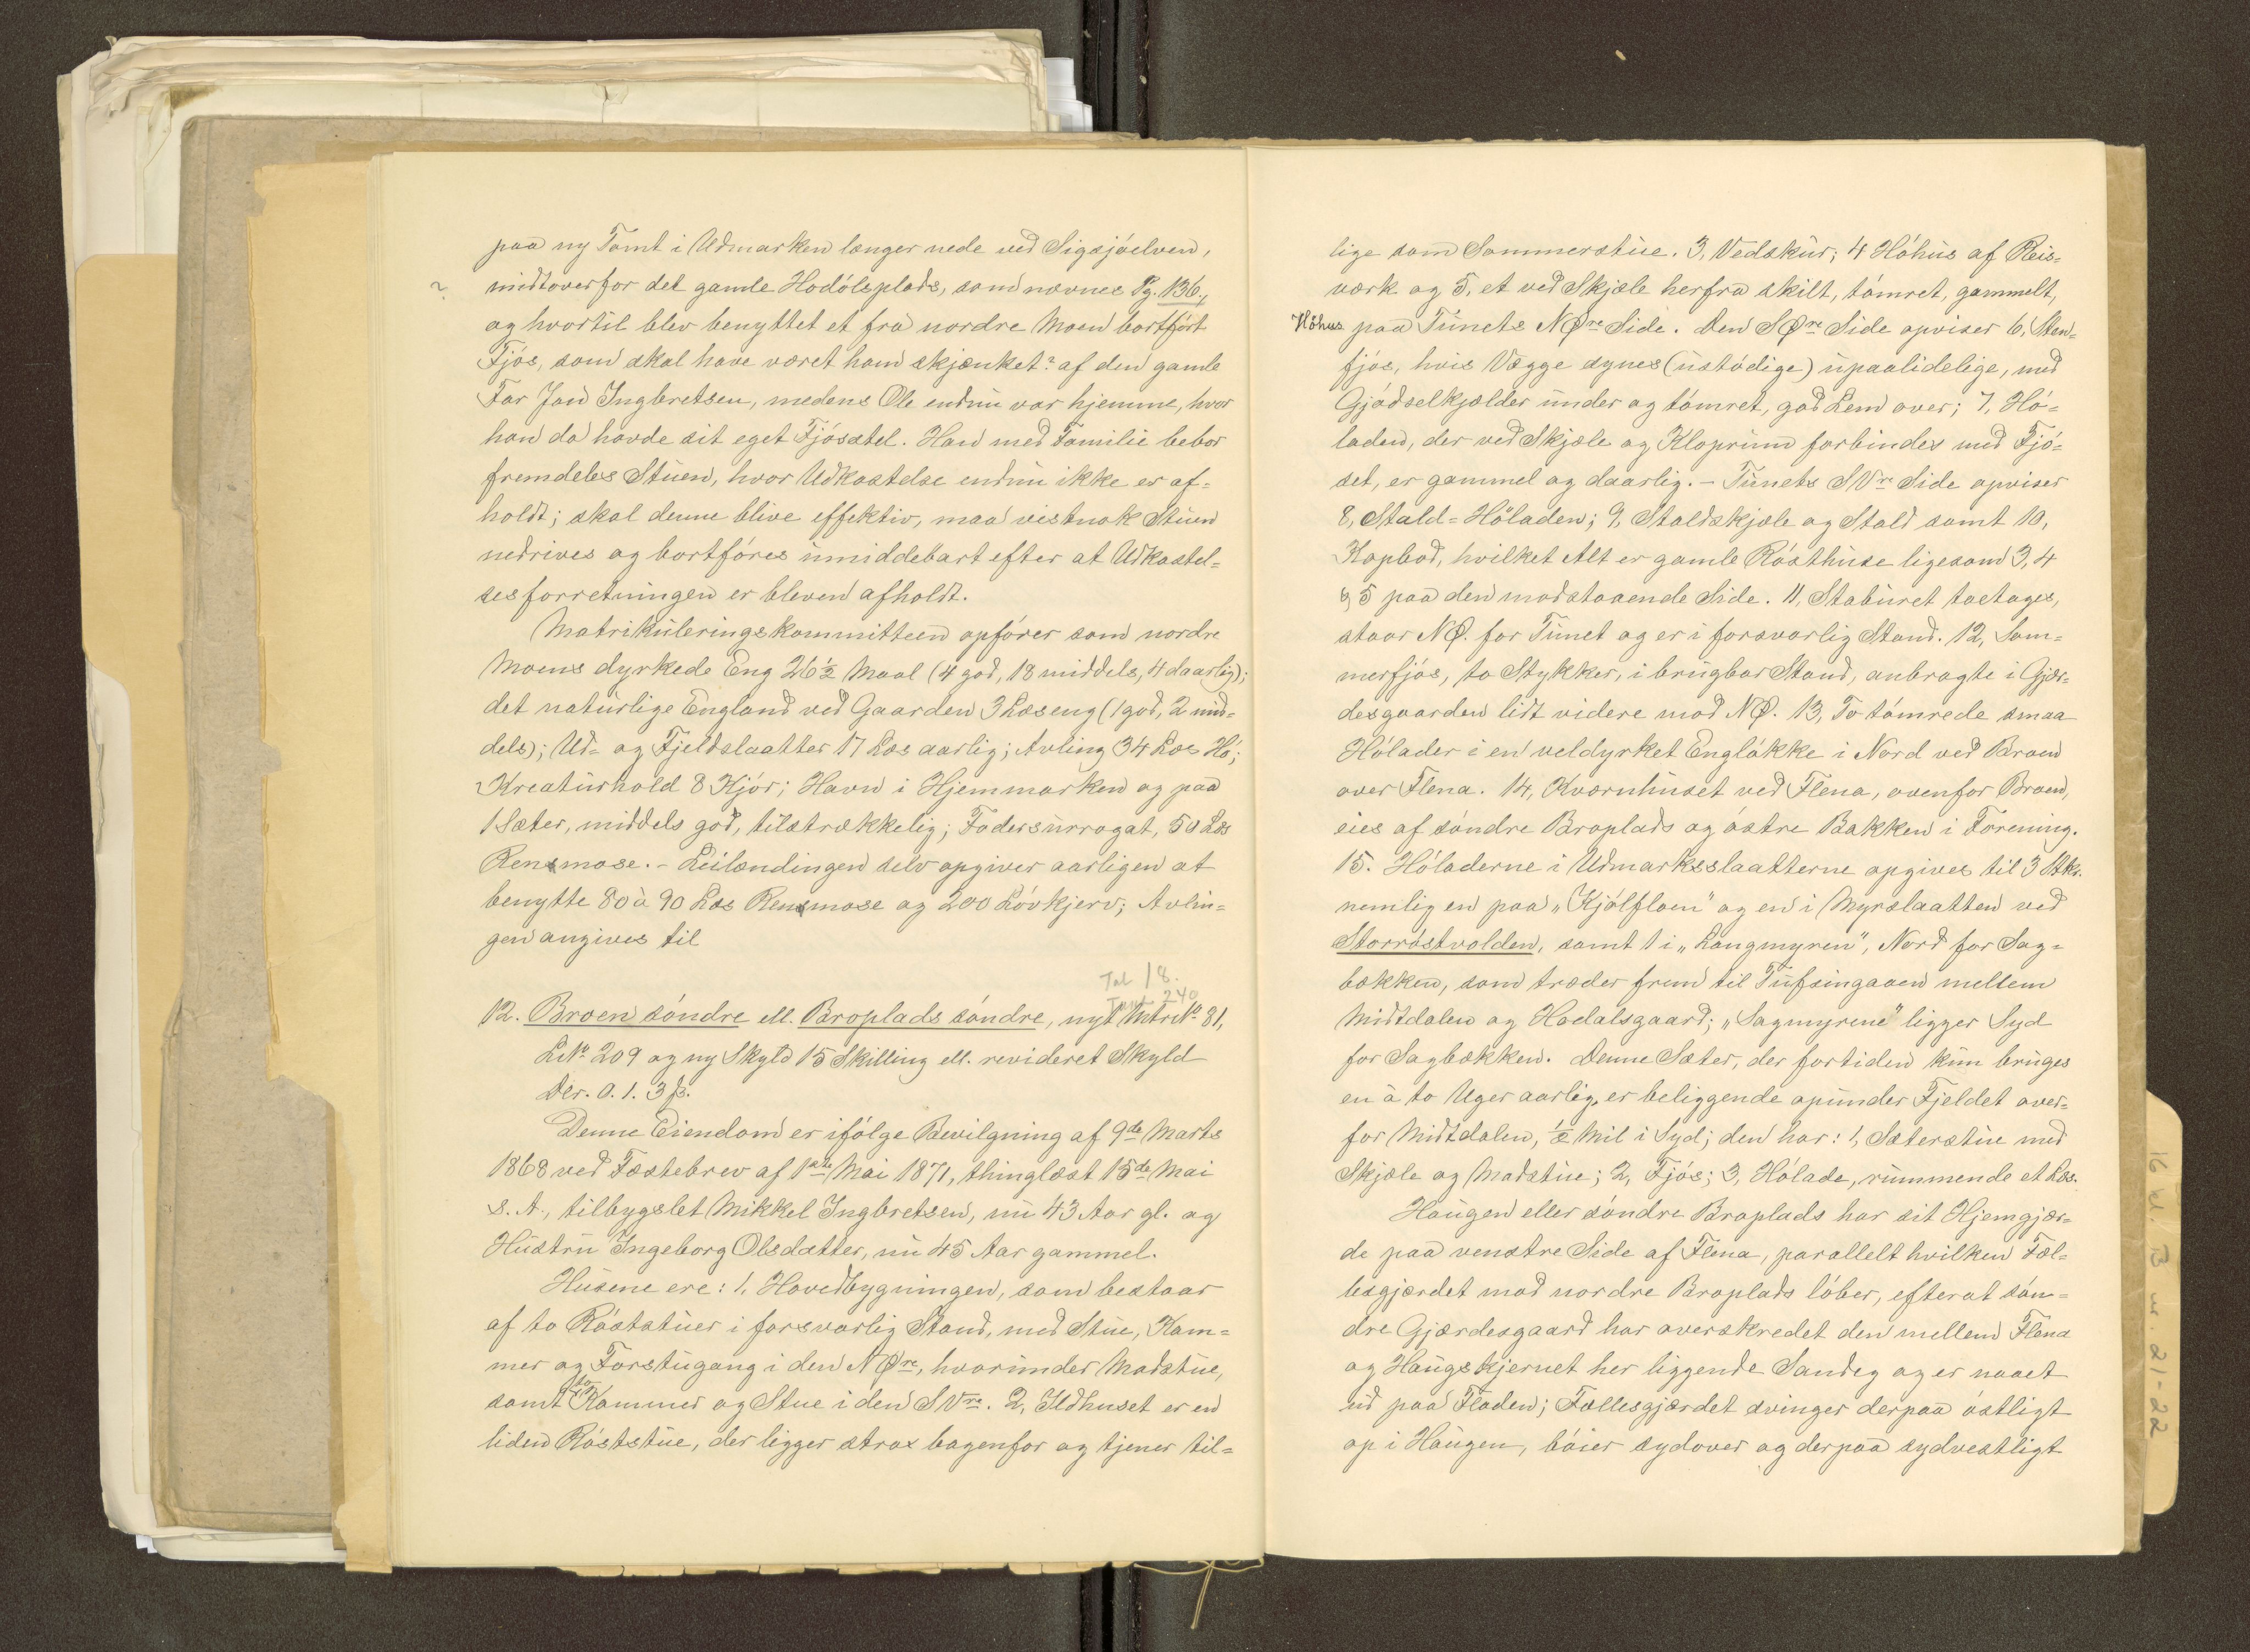 paa ny Tomt i Udmarken længer nede ved Sigsjóelven,
? midtoverfor det gamle Hodólsplads, som nævnes Pg. 136.,
og hvortil blev benyttet et fra nordre Moen bortfórt
Fjós, som skal have været ham skjænket? af den gamle
Far Jon Ingbretsen, medens Ole endnu var hjemme, hvor
han da havde sit eget Fjósstel. Han med Familie bebor
fremdeles Stuen, hvor Udkastelse endnu ikke er af=
holdt; skal denne blive effektiv, maa vistnok Stuen
nedrives og bortfóres umiddelbart efter at Udkastel=
sesforretningen er bleven afholdt.
Matrikuleringskommitteen opfórer som nordre
Moens dyrkede Eng 26½ Maal (4 god, 18 middels, 4 daarlig);
det naturlige England ved Gaarden 3 Læs eng (1 god, 2 mid=
dels); Ud= og Fjeldslaatter 17 Læs aarlig; Avling 34 Læs Hó;
Kreaturhold 8 Kjór; Havn i Hjemmarken og paa
1 Sæter, middels god, tilstrækkelig; Fodersurrogat, 50 Læs
Rensmose. - Leilændingen selv opgiver aarligen at
benytte 80 à 90 Læs Rensmose og 200 Lóvkjerv; Avlin=
gen angives til
Tal 18.
240
12. Broen sóndre ell. Broplads sóndre, nyt Mtr. № 81,
L№ 209 og ny Skyld 15 Skilling ell. revideret Skyld
Dlr. 0. 1. 3 ß.
Denne Eiendom er ifólge Bevilgning af 9de Marts
1868 ved Fæstebrev af 1ste Mai 1871, thinglæst 15de Mai
s. A., tilbygslet Mikkel Ingbretsen, nu 43 Aar gl. og
Hustru Ingeborg Olsdatter, nu 45 Aar gammel.
Husene ere: 1, Hovedbygningen, som bestaar
af to Róststuer i forsvarlig Stand, med Stue, Kam=
mer og Forstugang i den NØre, hvorunder Madstue,
samt to Kammer og Stue i den SVre. 2, Ildhuset er en
liden Róststue, der ligger strax bagenfor og tjener til=
lige som Sommerstue. 3, Vedskur; 4 Hóhus af Reis=
værk og 5, et ved Skjæle herfra skilt, tómret, gammelt,
Höhus paa Tunets NØre Side. Den SØre Side opviser 6, Sten=
fjós, hvis Vægge synes (ustódige) upaalidelige, med
Gjódselkjælder under og tómret, god Lem over; 7, Hó=
laden, der ved Skjæle og Kloprum forbindes med Fjó=
set, er gammel og daarlig. - Tunets SVre Side opviser
8, Stald=Höladen; 9, Staldskjæle og Stald samt 10,
Kopbod, hvilket Alt er gamle Rósthuse ligesom 3, 4
& 5 paa den modstaaende Side. 11, Staburet toetages,
staar NØ. for Tunet og er i forsvarlig Stand. 12, Som=
merfjós, to Stykker, i brugbar Stand, anbragte i Gjær=
desgaarden lidt videre mod NØ. 13, To tómrede smaa
Hólader i en veldyrket Englókke i Nord ved Broen
over Flena. 14, Kværnhuset ved Flena, ovenfor Broen,
eies af sóndre Broplads og óstre Bakken i Forening.
15. Hóladerne i Udmarksslaatterne opgives til 3 Stkr.
nemlig en paa "Kjólfloen" og en i Myrslaatten ved
Storróstvolden, samt 1 i "Langmyren", Nord for Sag=
bækken, som træder frem til Tufsingaaen mellem
Midtdalen og Hodalsgaard; "Sagmyrene" ligger Syd
for Sagbækken. Denne Sæter, der fortiden kun bruges
en à to Uger aarlig, er beliggende opunder Fjeldet over=
for Midtdalen, ½ Mil i Syd; den har: 1, Sæterstue med
Skjæle og Madstue; 2, Fjós; 3, Hólade, rummende et Læs.
Haugen eller sóndre Broplads har sit Hjemgjær=
de paa venstre Side af Flena, parallelt hvilken Fæl=
lesgjærdet mod nordre Broplads lóber, efterat són=
dre Gjærdesgaard har overskredet den mellem Flena
og Haugskjernet her liggende Sandeg og er naaet
ud paa Fladen; Fællesgjærdet svinger derpaa óstligt
op i Haugen, bóier sydover og derpaa sydvestligt